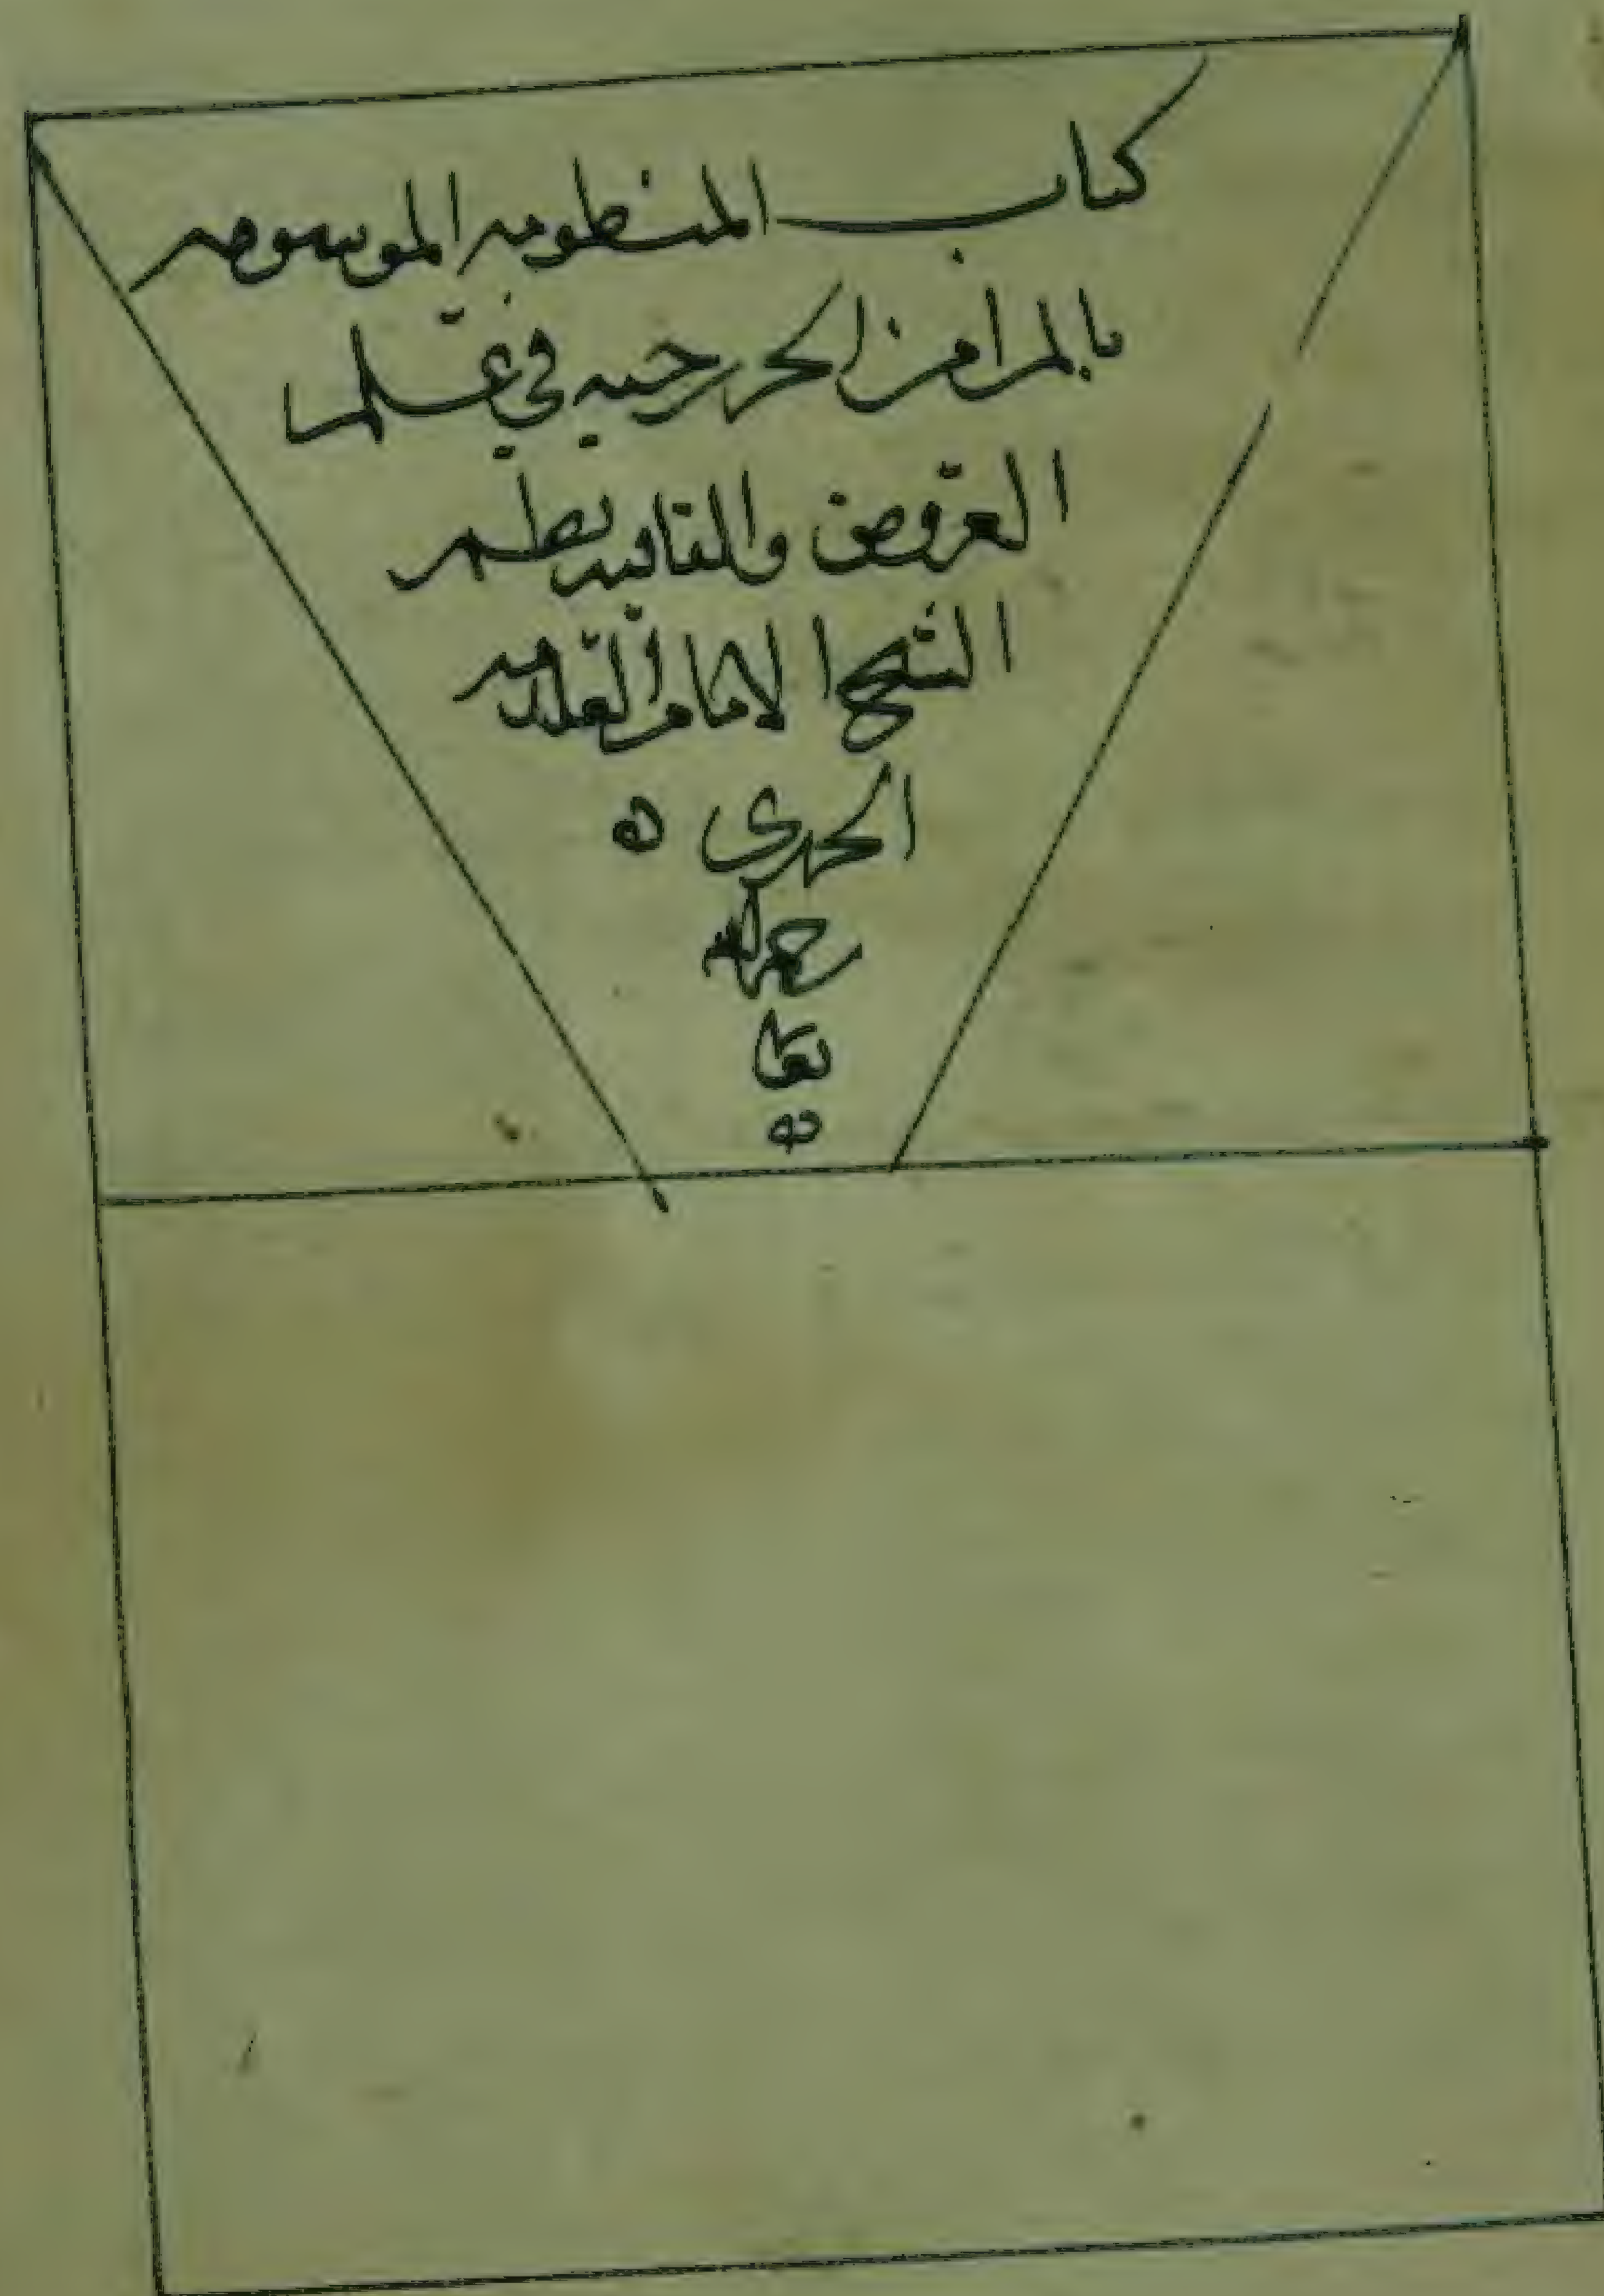 كتاب المنظومه الموسومه
بالمرامز الخزرجيه في علمي
العروض والقافيه نظم
الشيخ الامام العلامه
رحمه الله
تعالى